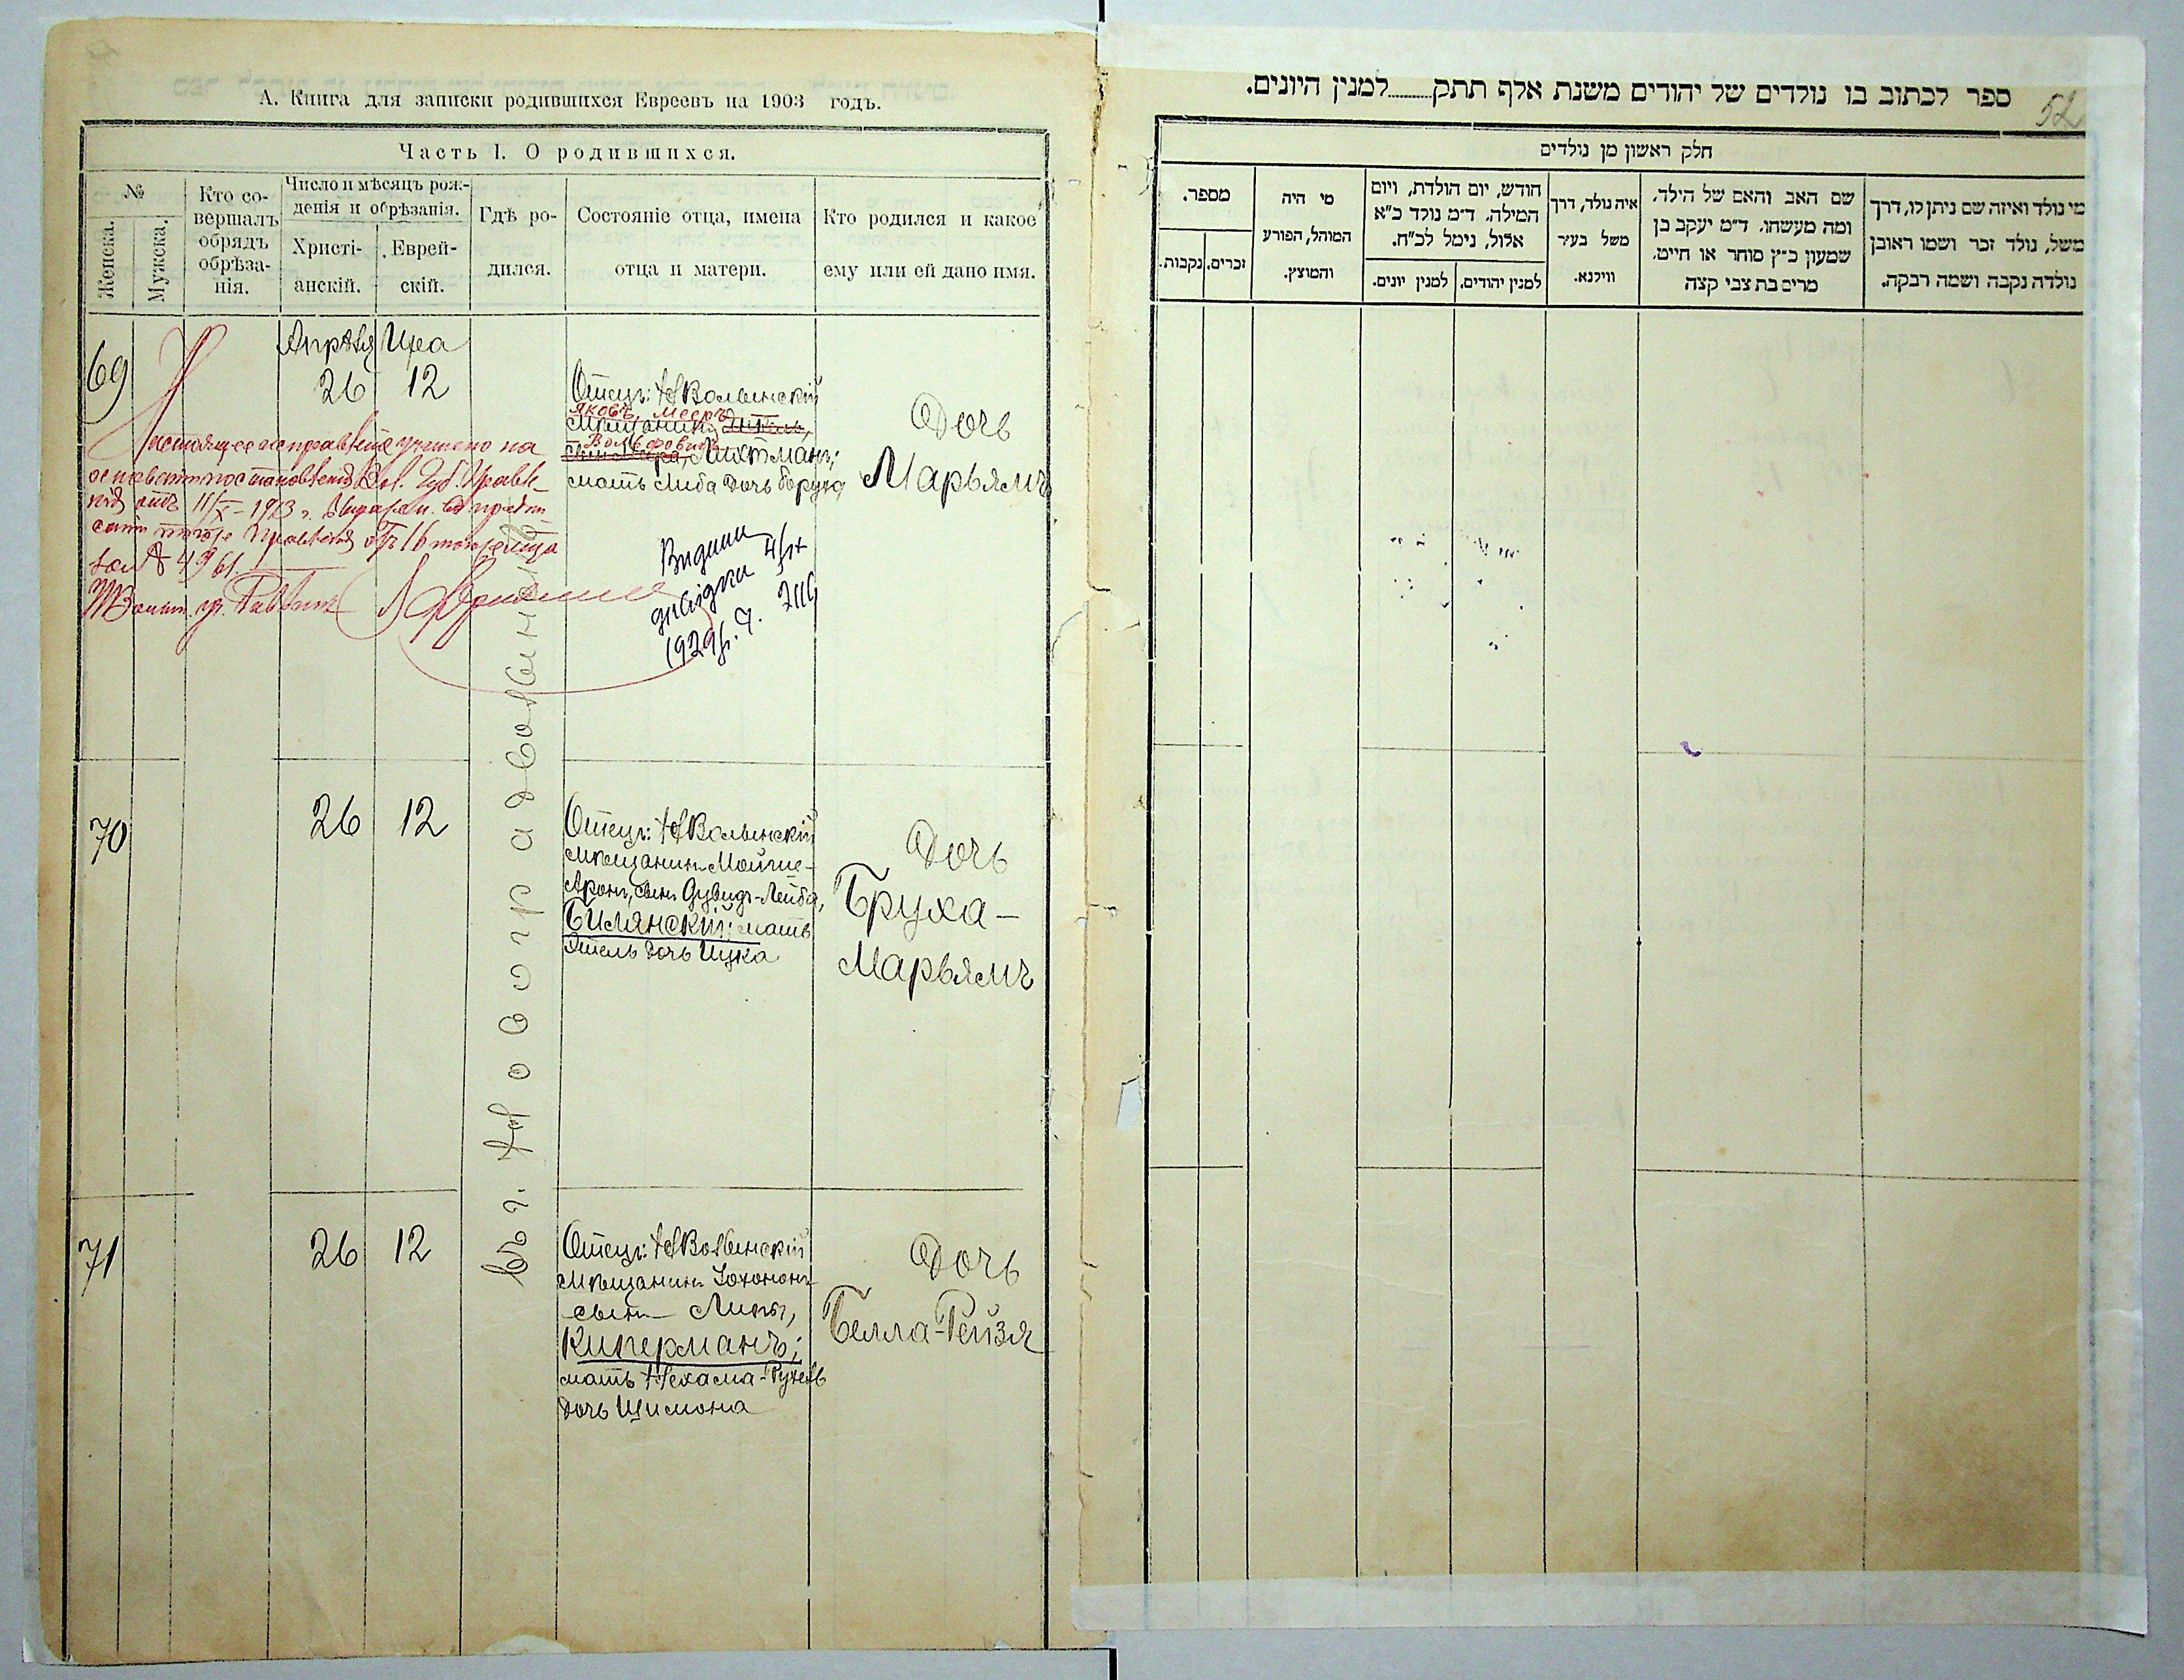 А. Книга для записки родившихся Евреевъ на 1903 годъ.
Часть I. О родившихся.
№
Женска.
Мужска.
Кто со-
вершалъ
обрядъ
обрѣза-
нія.
Число и мѣсяцъ рож-
денія и обрѣзанія.
Христі-
анскій.
Еврей-
скій.
Гдѣ ро-
дился.
Состояніе отца, имена
отца и матери.
Кто родился и какое
ему или ей дано имя.
Апрѣля Ияра
69
26 12
Отецъ: НВолынскій
Яковъ Мееръ
мѣщанинъ
Вольфовичъ
Лихтманъ;
мать Либа дочь Боруха
Дочь
Марьямъ
Настоящее исправленіе учинено на
основаніи постановленія Вол. Губ. Правле-
нія отъ 11/X-1913 г.
Правленія отъ 16 того же м-ца
за № 4961.
Раввинъ
Видана
4/IX
1929 р.
въ г. Новоградволынскѣ
70
26 12
Отецъ: НВолынскій
мѣщанинъ Мойше-
Аронъ, сынъ Дувидъ-Лейба,
Билянскій; мать
Этель дочь Ицка
Дочь
Бруха-
Марьямъ
71
26 12
Отецъ: НВолынскій
мѣщанинъ Іохононъ
сынъ Липы,
Киперманъ;
мать Нехама-Рухель
дочь Шимона
Дочь
Белла-Рейзя
ספר לכתוב בו נולדים של יהודים משנת אלף תתק........למנין היונים.
52
חלק ראשון מן נולדים
מספר.
זכרים.
נקבות.
מי היה
המוהל, הפורע
והמוצץ.
חודש, יום הולדת, ויום
המילה. ד״מ נולד כ״א
אלול, נימל לכ״ח.
למנין יונים.
למנין יהודים.
איה נולד, דרך
משל בעיר
ווילנא.
שם האב והאם של הילד,
ומה מעשהו. ד״מ יעקב בן
שמעון כ״ץ סוחר או חייט,
מרים בת צבי קצה
מי נולד ואיזה שם ניתן לו, דרך
משל, נולד זכר ושמו ראובן
נולדה נקבה ושמה רבקה.